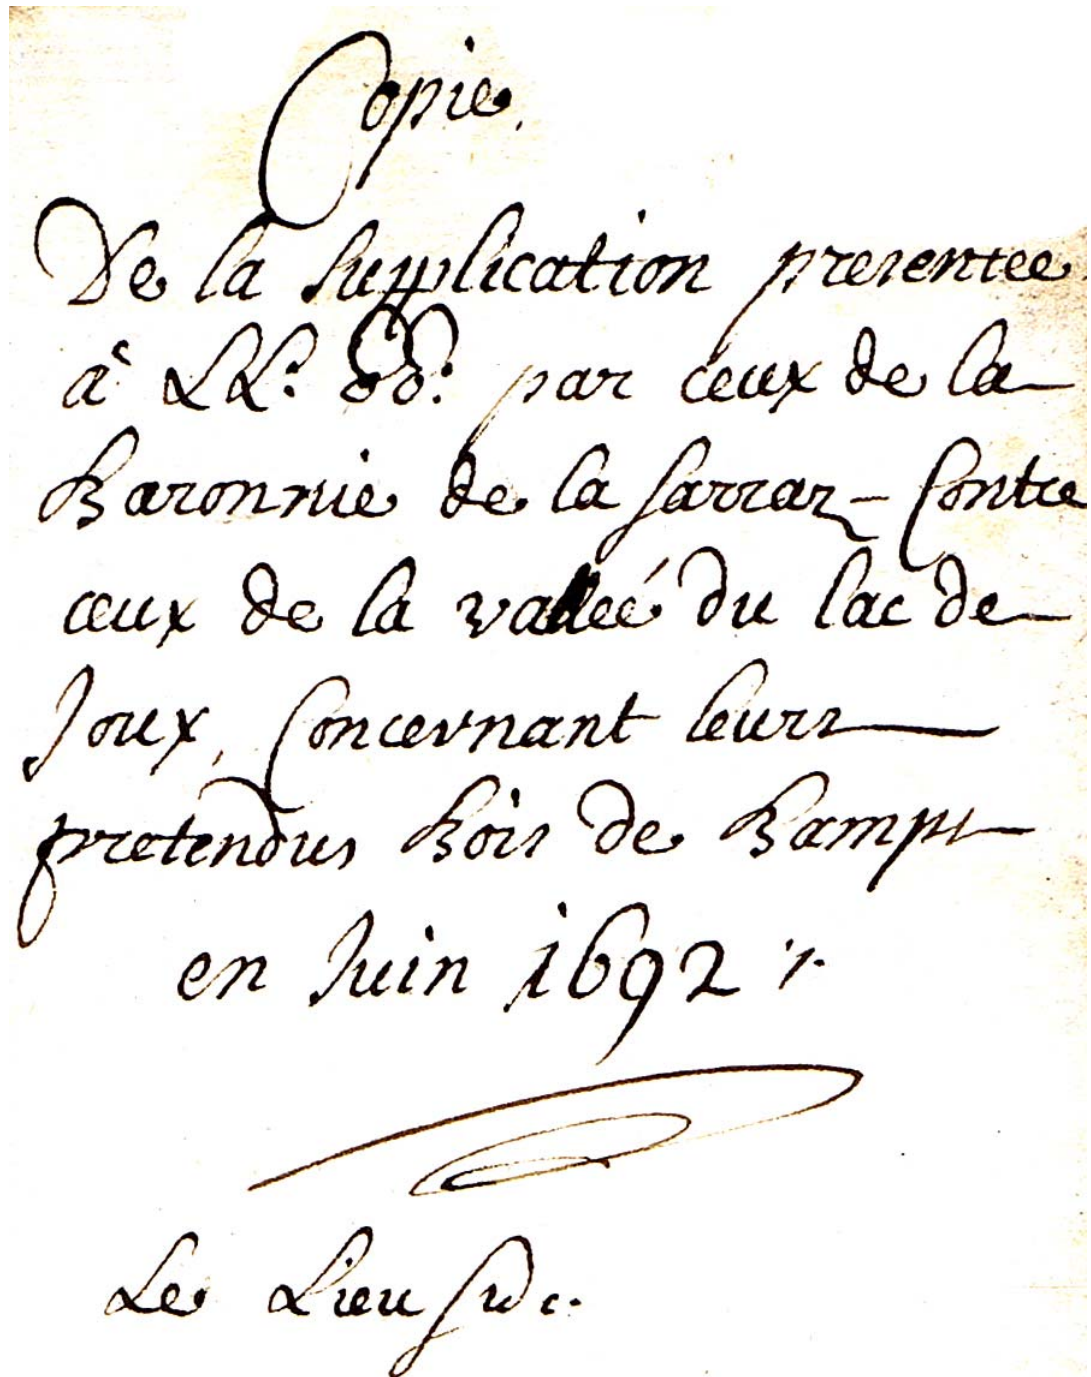 Copie.
De la Supplication presentee
à LL: EE: par ceux de la
Baronnie de la Sarraz - Contre
ceux de la valleé du lac de
Joux, Concernant leurs
pretendus Bois de Bamps
en Juin 1692
Le Lieu